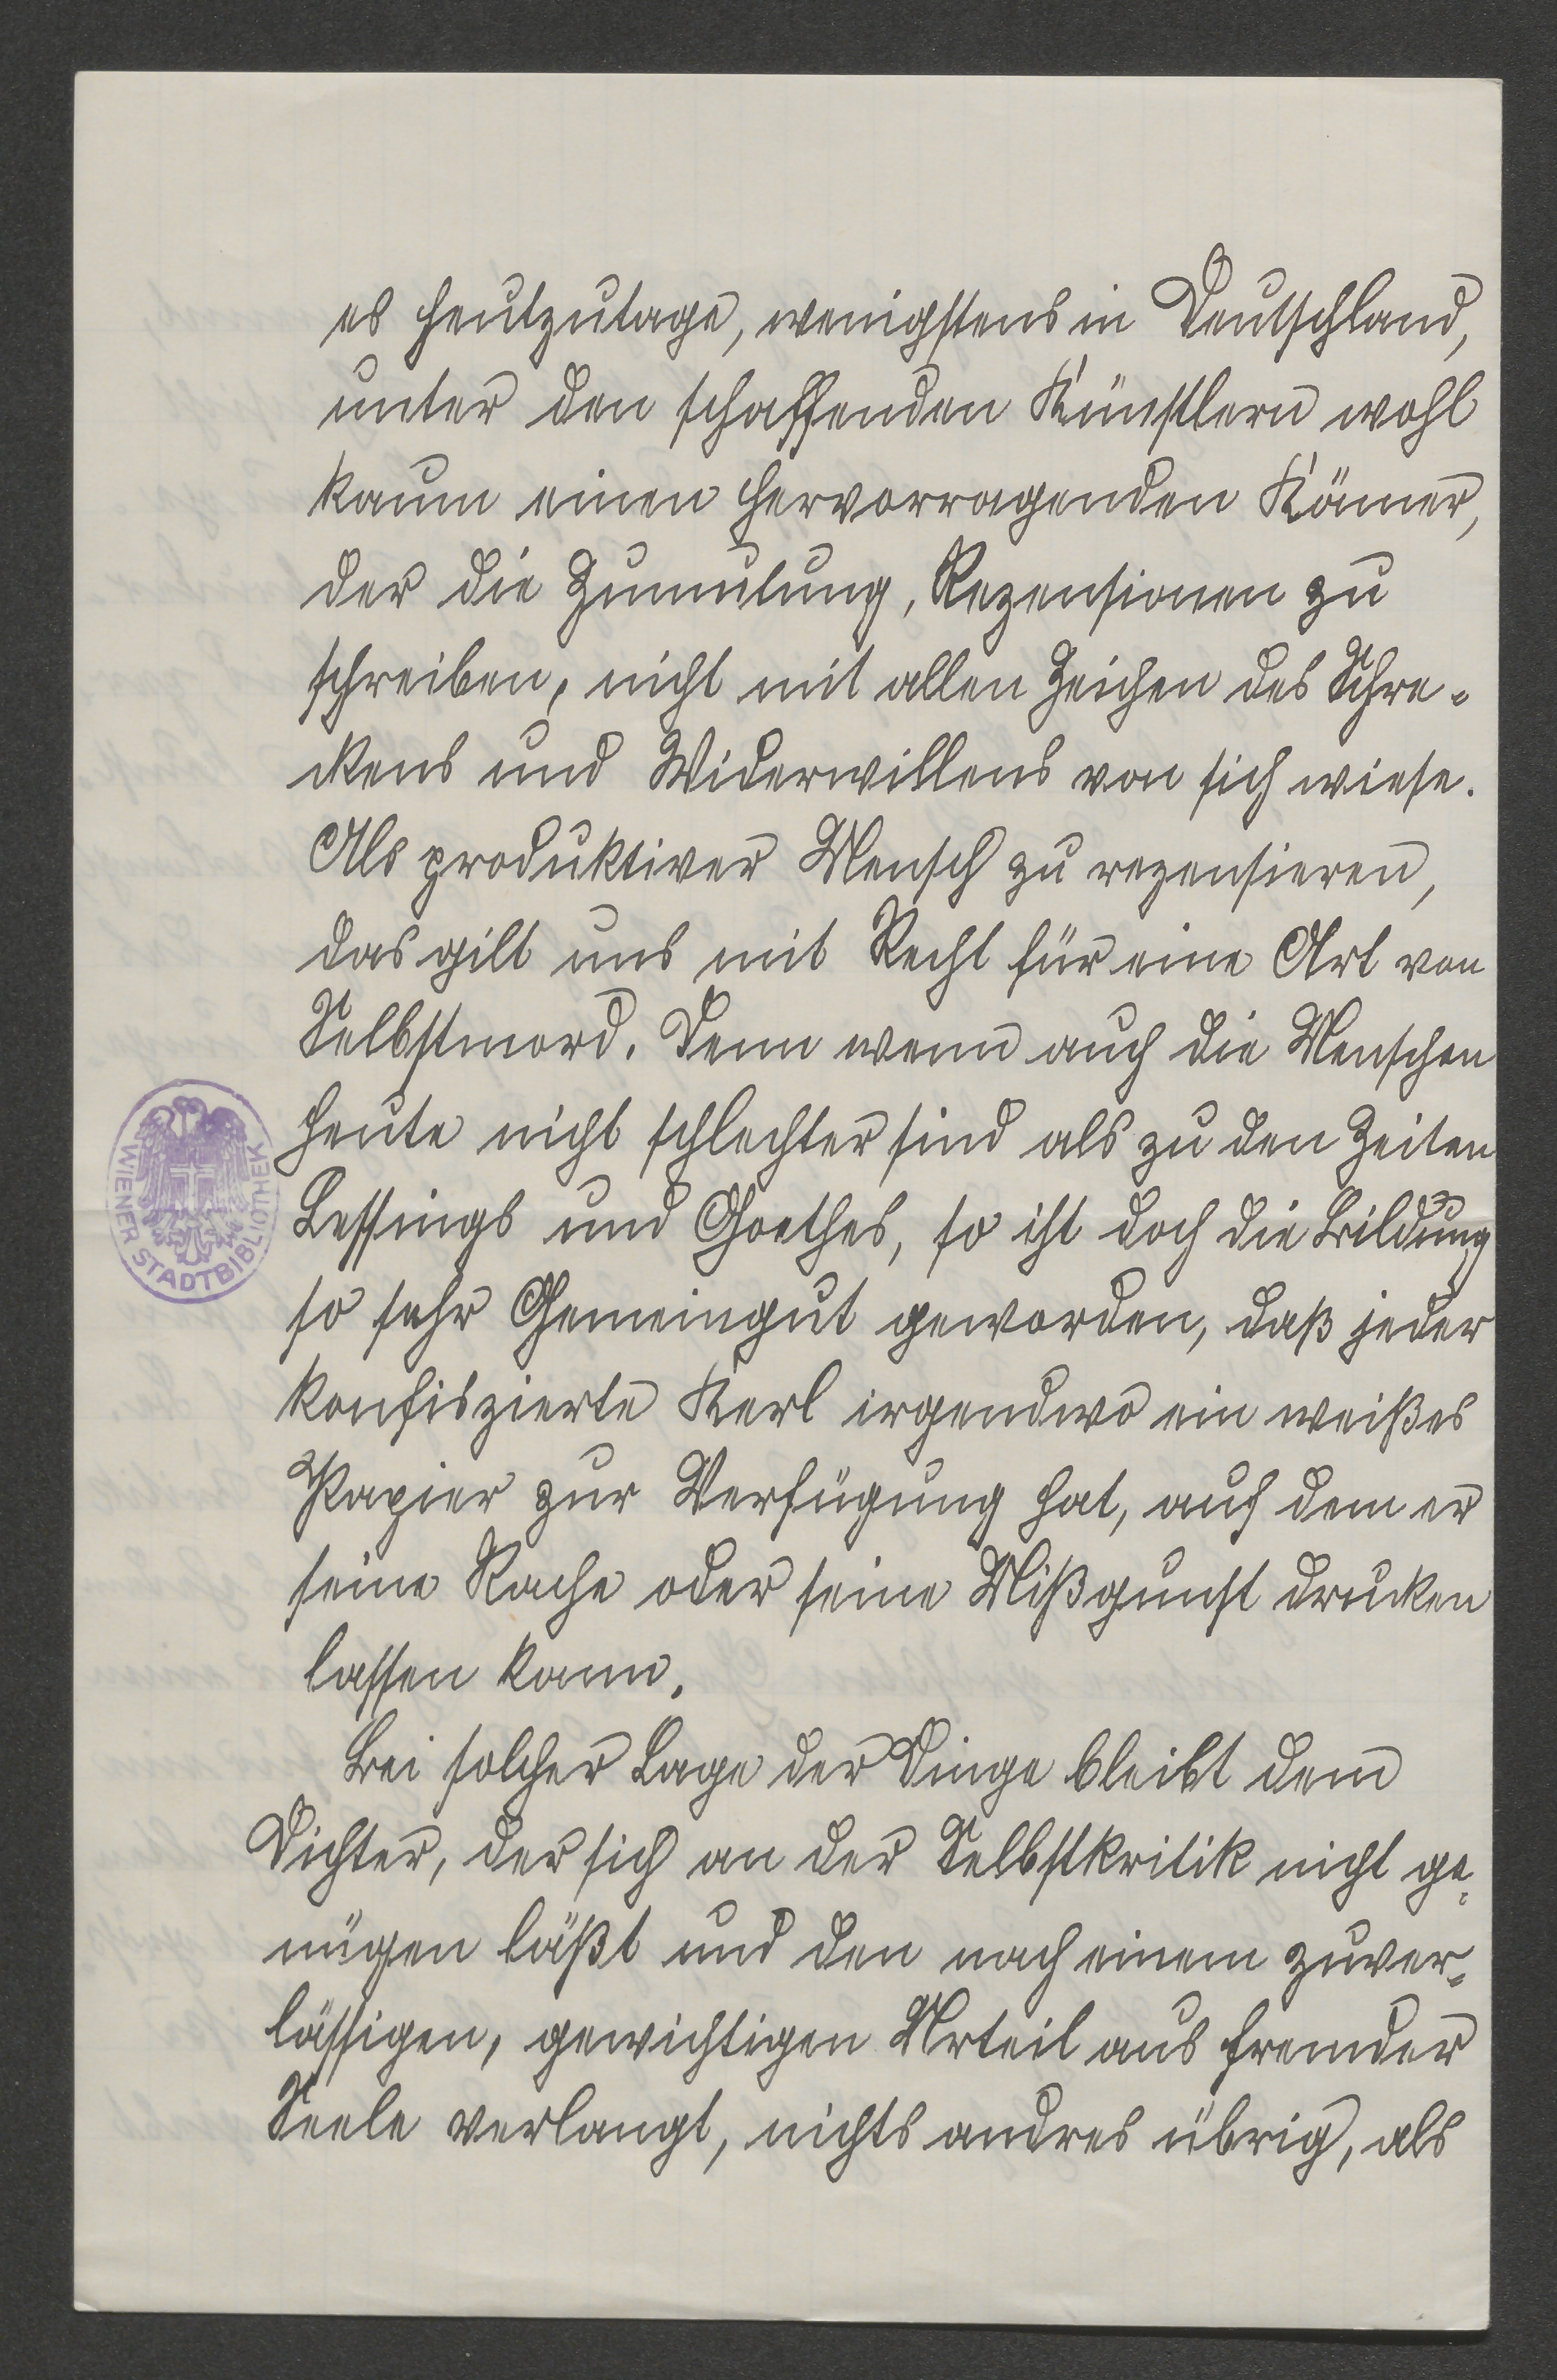 es heutzutage, wenigstens in Deutschland,
unter den schaffenden Künstlern wohl
kaum einen hervorragenden Könner,
der die Zumutung, Rezensionen zu
schreiben, nicht mit allen Zeichen des Schre-
ckens und Widerwillens von sich wiese.
Als produktiver Mensch zu rezensieren,
das gilt uns mit Recht für eine Art von
Selbstmord. Denn wenn auch die Menschen
heute nicht schlechter sind als zu den Zeiten
Lessings und Goethes, so ist doch die Bildung
so sehr Gemeingut geworden, daß jeder
konfiszierte Kerl irgendwo ein weißes
Papier zur Verfügung hat, auf dem er
seine Rache oder seine Mißgunst drucken
lassen kann.
Bei solcher Lage der Dinge bleibt dem
Dichter, der sich an der Selbstkritik nicht ge-
nügen läßt und den nach einem zuver-
lässigen, gewichtigen Urteil aus fremder
Seele verlangt, nichts andres übrig, als
WIENER STADTBIBLIOTHEK